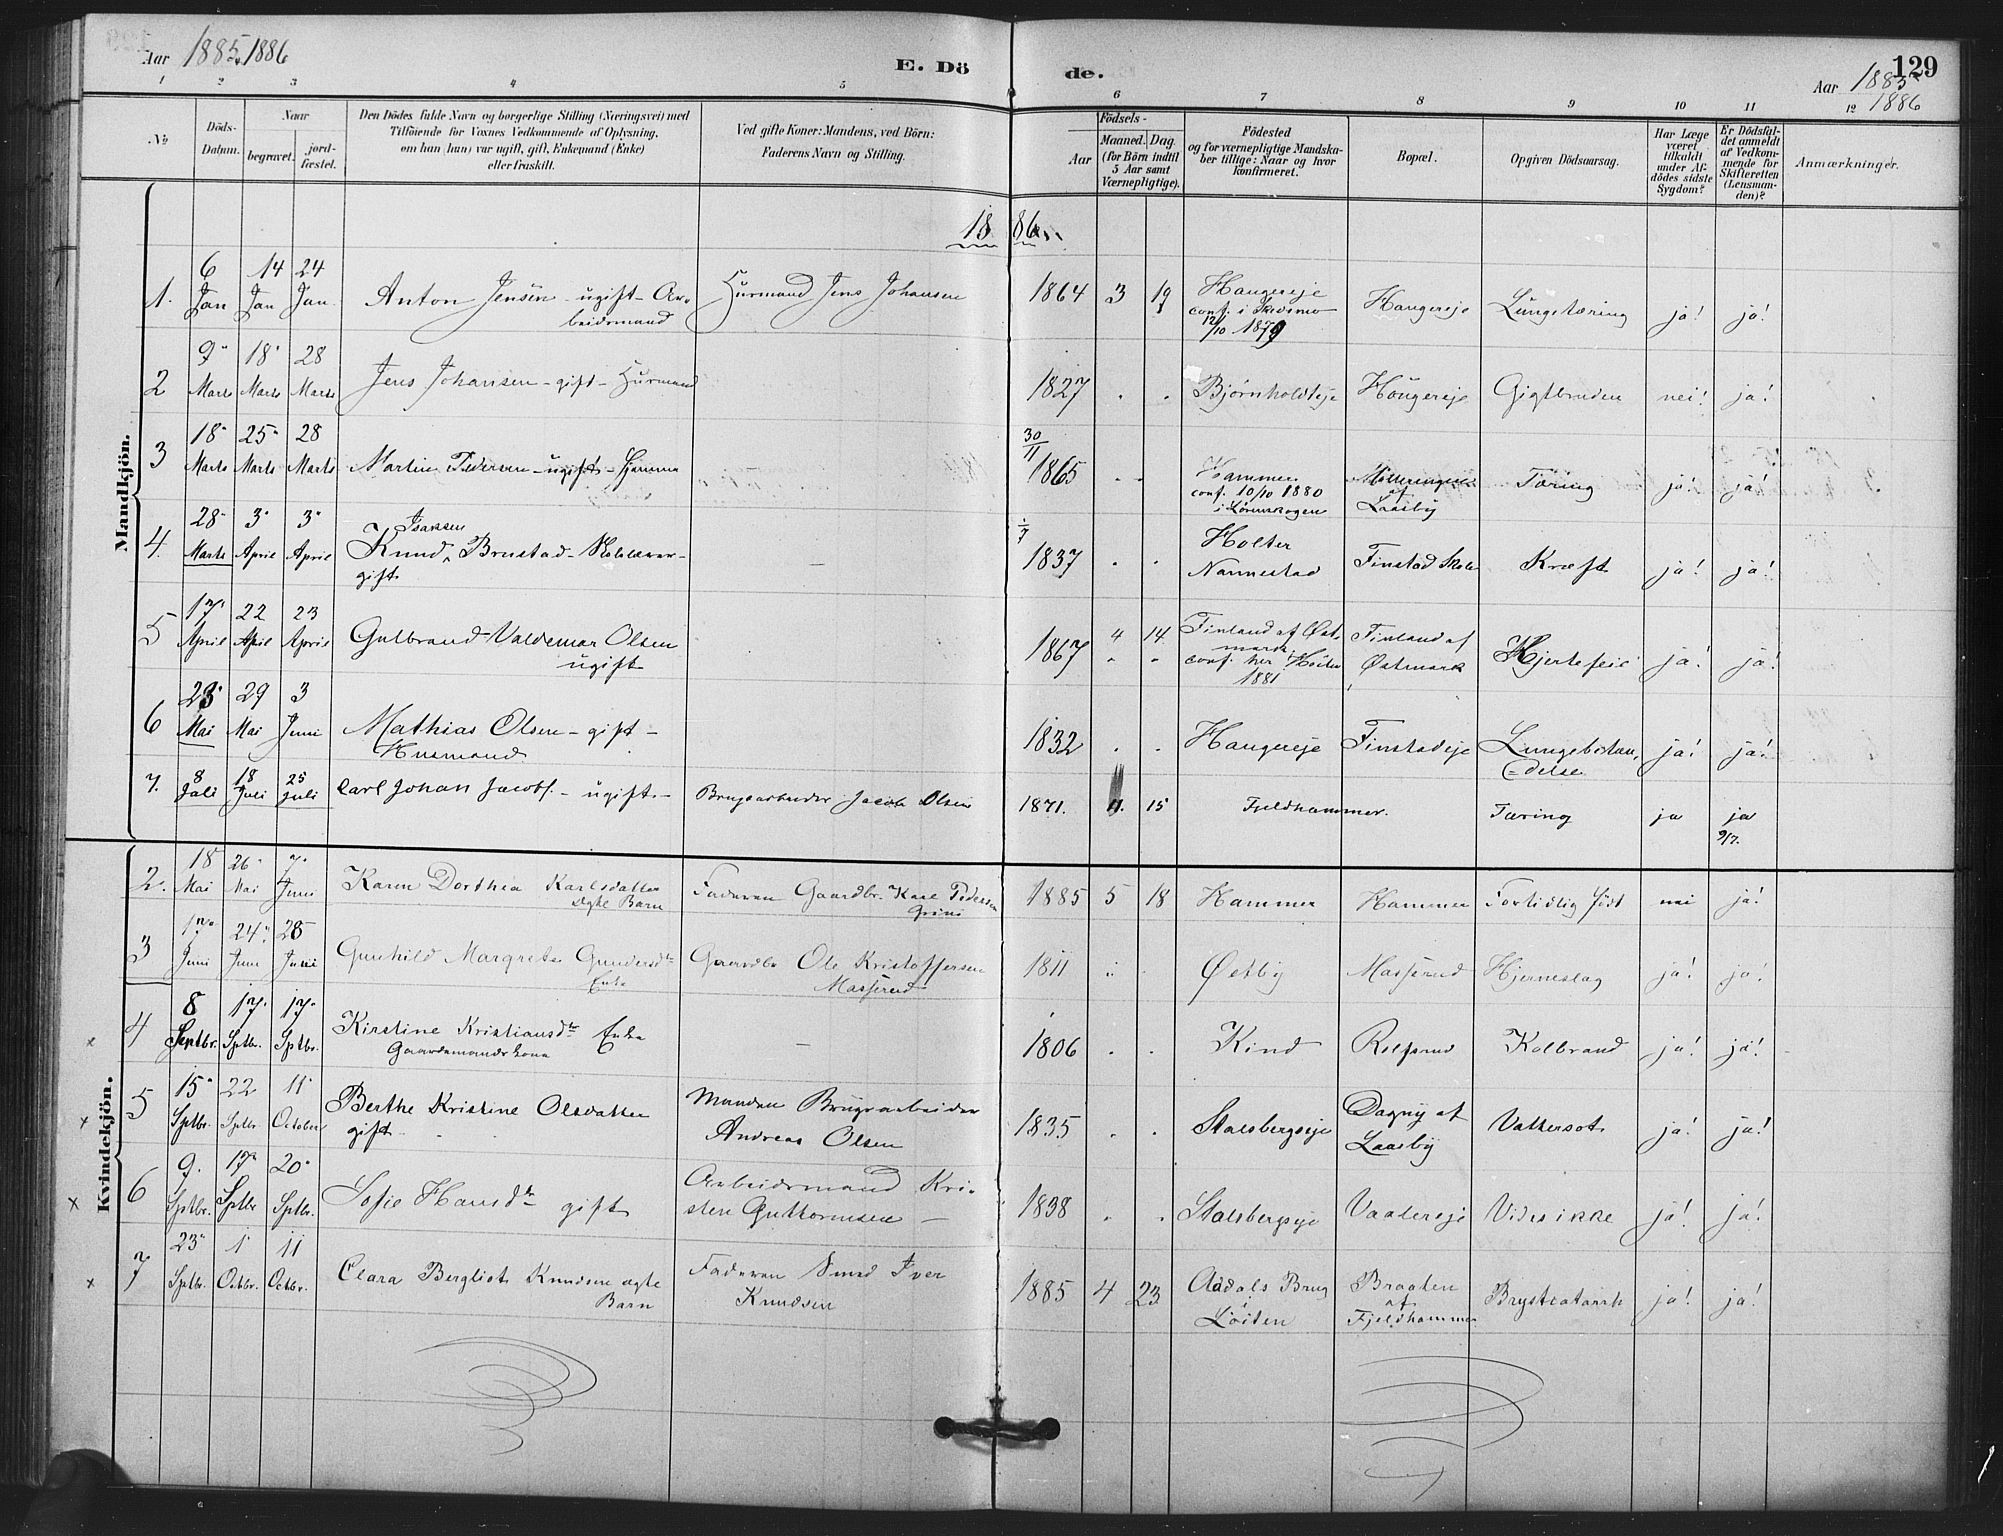 Aar 1885. 1886
E. Döde.
129
Aar 1885
1886
1 2 3 4 5 6 7 8 9 10 11 12
No.
Döds-Datum.
Naar
begravet.
jord-fæstet.
Den Dödes fulde Navn og borgerlige Stilling (Næringsvei) med
Tilföiende for Voxnes Vedkommende af Oplysning,
om han (hun) var ugift, gift, Enkemand (Enke)
eller fraskilt.
Ved gifte Koner: Mandens, ved Börn:
Faderens Navn og Stilling.
Födsels-
Aar
Maaned. Dag.
(for Börn indtil
5 Aar samt
Værnepligtige).
Födested
og for værnepligtige Mandska-
ber tillige: Naar og hvor
konfirmeret.
Bopæl.
Opgiven Dödsaarsag.
Har Læge
været
tilkaldt
under Af-
dödes sidste
Sygdom?
Er Dödsfal-
det anmeldt
af Vedkom-
mende for
Skifteretten
(Lensman-
den)?
Anmærkninger.
1886
Mandkjön.
1. 6 Jan 14 Jan 24 Jan. Anton Jensen - ugift - Ar-
beidsmand
Husmand Jens Johansen 1864 3 19 Haugereje
conf. i Skedsmo
12/10 1879
Haugereje Lungetæring ja! ja!
2 9 Marts 18 Marts 28 Marts Jens Johansen - gift - Husmand 1827 Bjørnholdteje Haugereje Gigtbruden nei! ja!
3 18 Marts 25 Marts 28 Marts Martin Pedersen - ugift - hjemme 30/11 1865 Hammer
conf. 10/10 1880
i Lørenskogen
af
Laasby
Tæring ja! ja!
4. 28 Marts 3 April 3 April Isaksen
Knud Brustad - Skolelærer -
gift
1/7 1837 Holter
Nannestad
Finstad Skole Kræft ja! ja!
5 17 April 22 April 23 April Gulbrand Valdemar Olsen
ugift
1867 4 14 Finland af Øst-
mark
conf. her Høsten
1881
Finland af
Østmark
Hjertefeil ja! ja!
6 23 Mai 29 Mai 3 Juni Mathias Olsen - gift -
Husmand
1832 Haugereje Finstadeje Lungebetæn-
delse
ja! ja!
7. 8 Juli 18 Juli 25 Juli Carl Johan Jacobs. - ugift - Brugsarbeider Jacob Olsen 1871. 11. 15 Fjeldhammer. Tæring ja ja
9/7.
Kvindekjön.
2. 18 Mai 26 Mai 7 Juni Karen Dorthea Karlsdatter
ægte Barn
Faderen Gaardbr. Karl Pedersen
1885 5 18 Hammer Hammer Fortidlig født nei ja!
3 17 Juni 24 Juni 25 Gunhild Margrete Gundersdtr
Enke
Gaardbr Ole Kristoffersen
Masserud
1811 Østby Masserud Hjerneslag ja! ja!
x 4 8 Septbr. 17 Sptbr. 17 Sptbr. Kirstine Kristiansdtr Enke
Gaardmandskone
1806 Kind Rolfsrud Kolbrand ja! ja!
x 5 15 Sptbr. 22 Sptbr 11 October Berthe Kristine Olsdatter
gift -
Manden Brugsarbeider
Andreas Olsen
1835 Stalsbergseje Dagny af
Laasby
Vattersot ja! ja!
x 6 9. Sptbr. 17 Sptbr 20 Sptbr. Sofie Hansdtr gift Arbeidsmand Kri-
sten Guttormsen -
1838 Stalsbergseje Vaalereje Vides ikke ja! ja!
x 7 23 Sptbr. 1 Octbr. 11 Octbr. Clara Bergliot Knudsen ægte
Barn
Faderen Smed Iver
Knudsen
1885 4 23 Aadals Brug
i
Løiten
Braaten
af
Fjeldhammer
Brystcatarrh ja! ja!